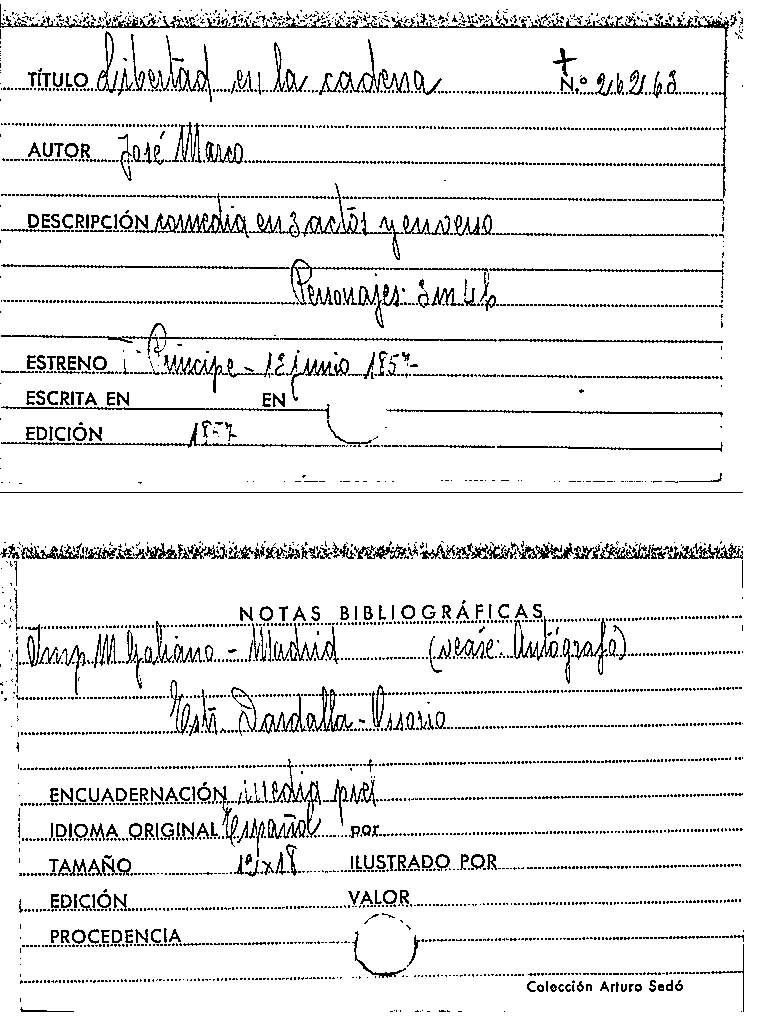 TÍTULO Libertad en la cadena N.º 26263
AUTOR José Marco
DESCRIPCIÓN comedia en 3 actos y en verso
Personajes: 3 m 4 h
ESTRENO T. Principe - 12 junio 1857-
ESCRITA EN EN
EDICIÓN 1857
NOTAS BIBLIOGRÁFICAS
Imp. M Galiano - Madrid (vease: Autógrafo)
Estr. Dardalla - Ossorio
ENCUADERNACIÓN media piel
IDIOMA ORIGINAL Español por
TAMAÑO ILUSTRADO POR
EDICIÓN VALOR
PROCEDENCIA
Colección Arturo Sedó